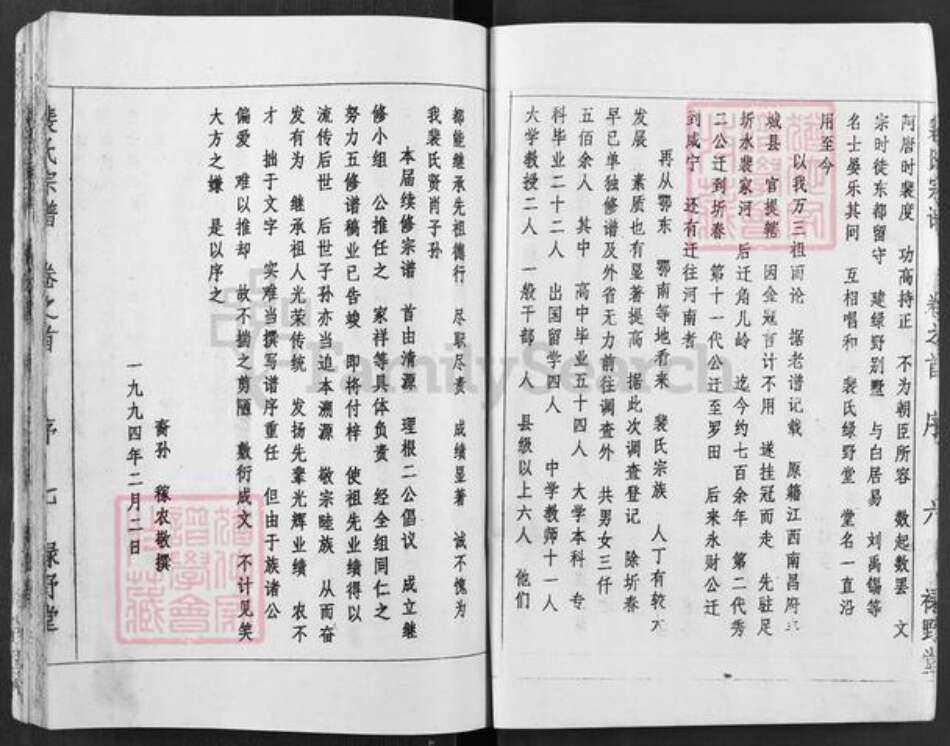 裴氏宗谱 卷之首 序 六 绿野堂
阿唐时裴度 功高持正 不为朝臣所容 数起数罢 文
宗时徒东都留守 建绿野别墅 与白居易 刘禹锡等
名士晏乐其间 互相唱和 裴氏绿野堂 堂名一直沿
用至今
以我万三祖而论 据老谱记载 原籍江西南昌府
城县 官提辖 因金冠首计不用 遂挂冠而走 先驻足
圻水裴家河 后迁角儿岭 迄今约七百余年 第二代秀
二公迁到圻春 第十一代公迁至罗田 后来永财公迁
到咸宁 还有迁往河南者
再从鄂东 鄂南等地看来 裴氏宗族 人丁有较大
发展 素质也有显著提高 据此次调查登记 除圻春
早已单独修谱及外省无力前往调查外 共男女三仟
五佰余人 其中 高中毕业五十四人 大学本科 专
科毕业二十二人 出国留学四人 中学教师十一人
大学教授二人 一般干部 人 县级以上六人 他们
都能继承先祖德行 尽职尽责 成绩显著 诚不愧为
我裴氏贤肖子孙
本届续修宗谱 首由清源 理根二公倡议 成立继
修小组 公推任之 家祥等具体负责 经全组同仁之
努力五修谱稿业已告竣 即将付梓 使祖先业绩得以
流传后世 后世子孙亦当追本溯源 敬宗睦族 从而奋
发有为 继承祖人光荣传统 发扬先辈光辉业绩 农不
才 拙于文字 实难当撰写谱序重任 但由于族诸公
偏爱 难以推却 故不揣之剪陋 敷衍成文 不计见笑
大方之嫌 是以序之
裔孙 稼农敬撰
一九九四年二月二日
裴氏宗谱 卷之首 序 七 绿野堂
FamilySearch